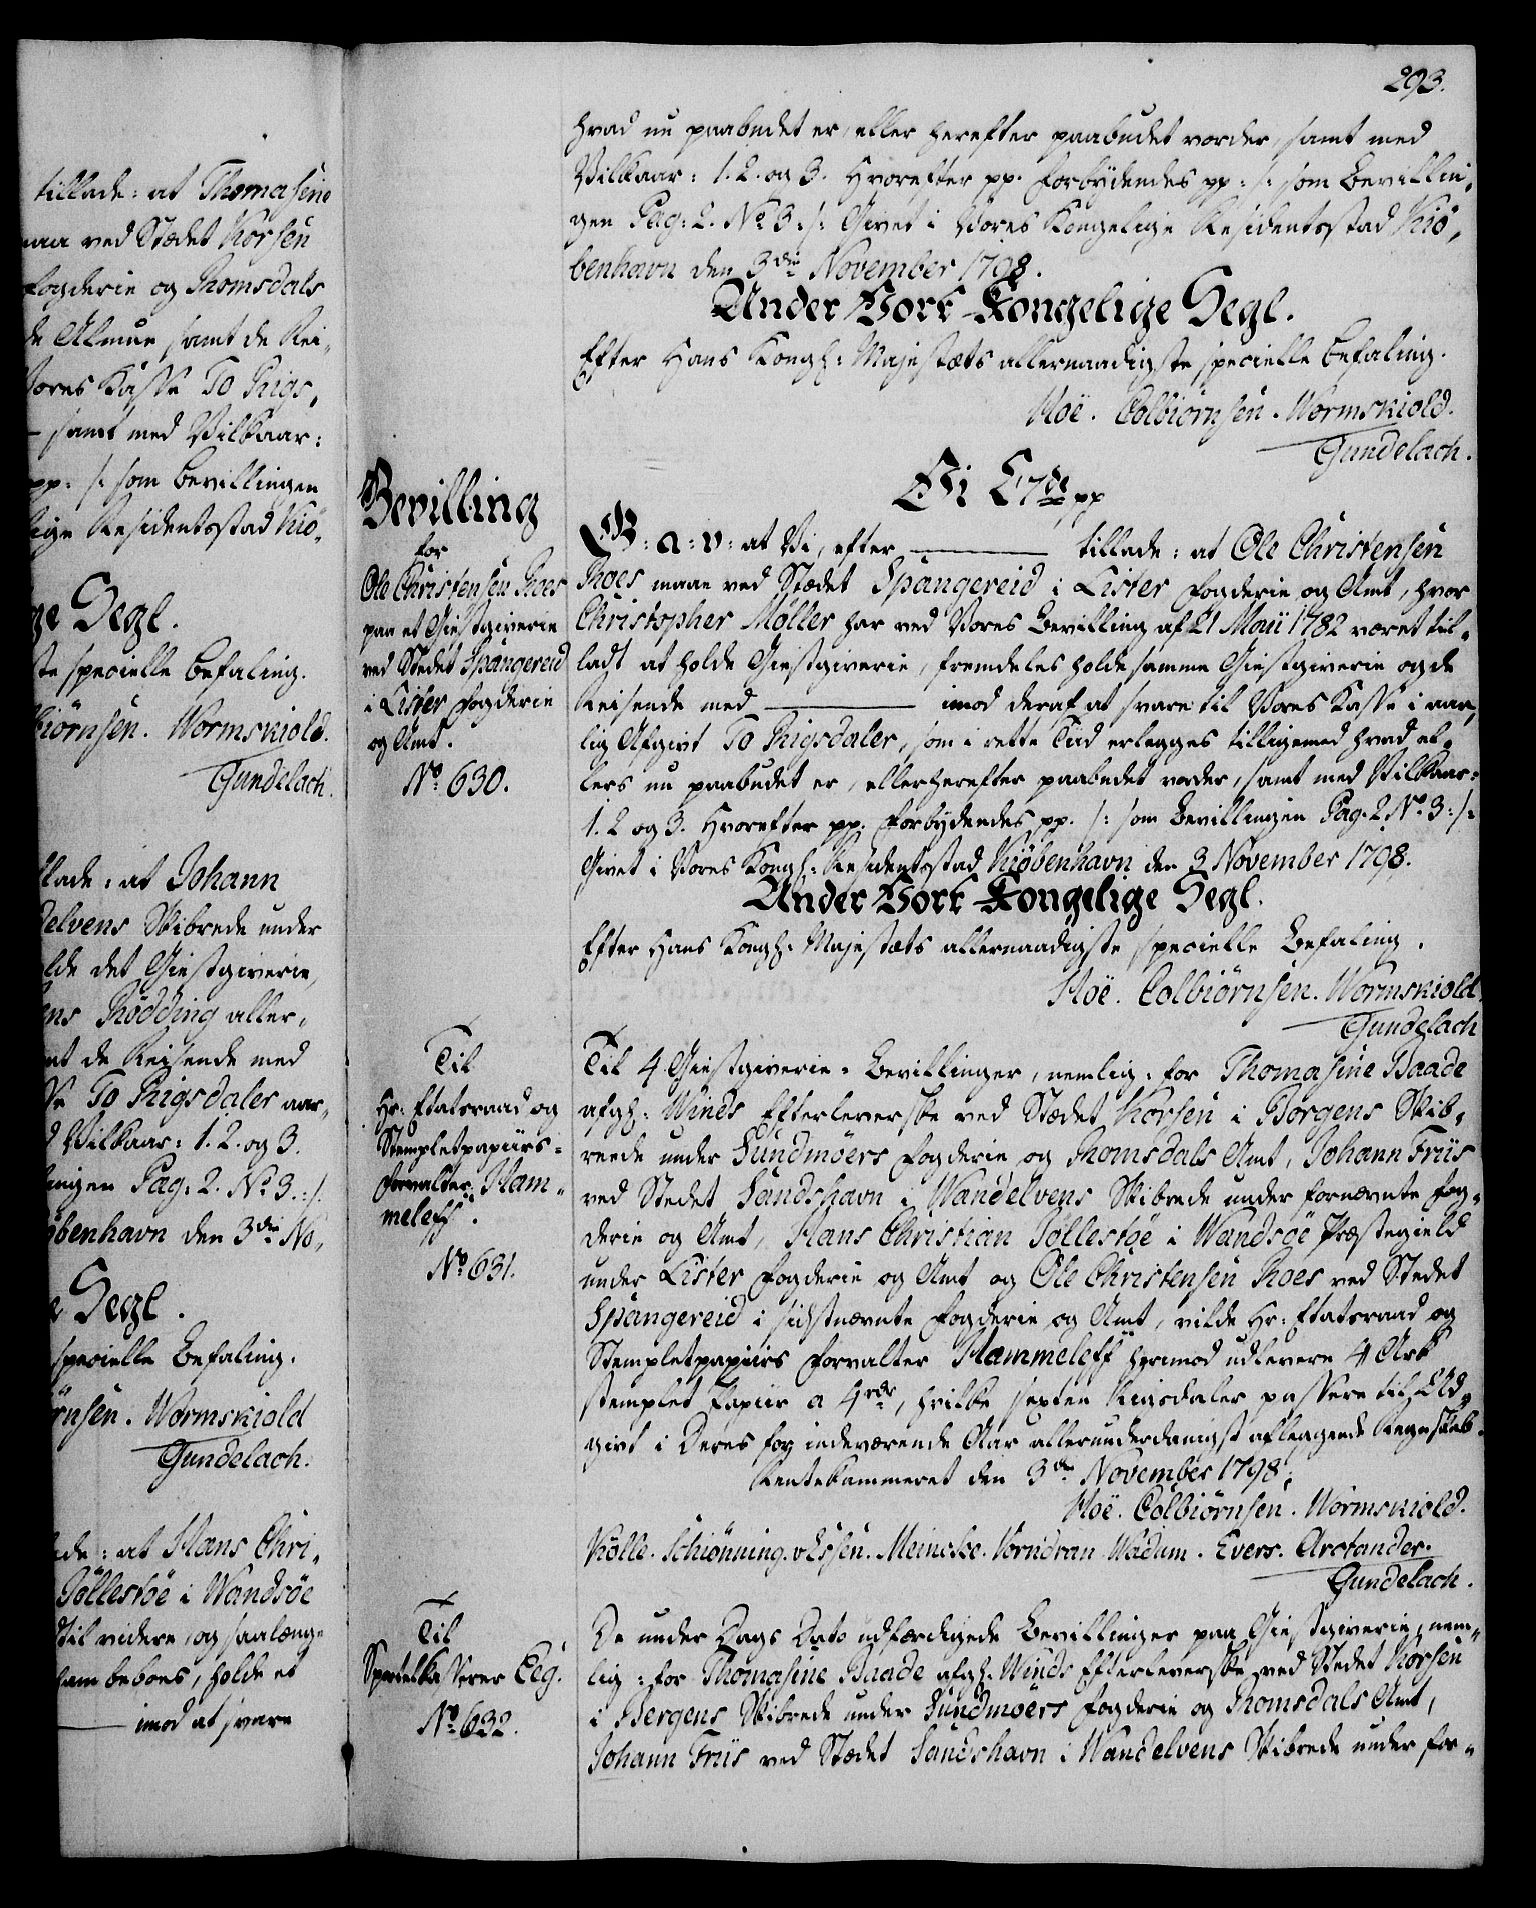 293.
hvad nu paabudet er, eller herefter paabudet vorder, samt med
Vilkaar: 1. 2. og 3. Hvorefter pp. Forbydendes pp: /: som Bevillin„
gen Pag: 2. No 3: /: Givet i Vores Kongelige Residentsstad Kiö„
benhavn den 3die November 1798.
Under Vort Kongelige Segl.
Efter Hans Kongl: Majestæts allernaadigste specielle Befaling.
Hoë. Colbiørnsen. Wormskiold.
Gundelach.
Vi C7de pp
Bevilling
for
Ole Christensen Roes
paa et Giestgiverie
ved Stedet Spangereid
i Lister Fogderie
og Amt.
No 630.
G: a: v: at Vi, efter ——— tillade: at Ole Christensen
Roes maae ved Stædet Spangereid i Lister Fogderie og Amt, hvor
Christopher Møller har ved Vores Bevilling af 21 Maii 1782 været til„
ladt at holde Giestgiverie, fremdeles holde samme Giestgiverie og de
Reisende med ——— imod deraf at svare til Vores Kasse i aar„
lig Afgivt To Rigsdaler, som i rette Tiid erlegges tilligemed hvad el„
lers nu paabudet er, eller herefter paabudet vorder, samt med Vilkaar:
1. 2 og 3. Hvorefter pp. Forbydendes pp. /: som Bevillingen Pag. 2. No 3: /:
Givet i Vores Kongl: Residentsstad Kiöbenhavn den 3 November 1798.
Under Vort Kongelige Segl.
Efter Hans Kongl: Majestæts allernaadigste specielle Befaling.
Hoë. Colbiörnsen. Wormskiold.
Gundelach
Til
Hr: Etatsraad og
Stempletpapiirs-
Forvalter Ham„
meleff.
No 631.
Til 4 Giestgiverie-Bevillinger, nemlig: for Thomasine Baade
afgl: Winds Efterleverske ved Stædet Korsen i Borgens Skib„
reede under Sundmöers Fogderie og Romsdals Amt, Johann Friis
ved Stedet Sandshavn i Wandelvens Skibrede under fornævnte Fog„
derie og Amt, Hans Christian Jöllestöe i Wandsöe Præstegield
under Lister Fogderie og Amt og Ole Christensen Roes ved Stedet
Spangereid i sidstnævnte Fogderie og Amt, vilde Hr: Etatsraad og
Stempletpapiirs Forvalter Hammeleff herimod udlevere 4 Ark
stemplet Papiir a 4rdr, hvilke sexten Rigsdaler passere til Ud„
givt i Deres for indeværende Aar allerunderdanigst aflæggende Regnskab.
Rentekammeret den 3die November 1798.
Hoë. Colbiörnsen. Wormskiold.
Kölle. Schiönning. v Essen. Meincke. Vorndran Wadum. Evers. Arctander.
Gundelach.
Til
Sportelkasserer Eeg.
No 632.
De under Dags Dato udfærdigede Bevillinger paa Giestgiverie, nem„
lig: for Thomasine Baade afgl. Winds Efterleverske ved Stedet Korsen
i Bergens Skibrede under Sundmoers Fogderie og Romsdals Amt,
Johann Friis ved Stædet Sandshavn i Wandelvens Skibrede under for„
tillade: at Thomasine
maa ved Stædet Korsen
Fogderie og Romsdals
de Almue samt de Rei„
Vores Kasse To Rigs„
— samt med Vilkaar:
pp: /: som Bevillingen
lige Residentsstad Kiö„
ge Segl.
ste specielle Befaling.
biörnsen. Wormskiold.
Gundelach.
llade: at Johann
delvens Skibrede under
olde det Giestgiverie,
ens Rödding aller„
mt de Reisende med
sse To Rigsdaler aar„
d Vilkaar: 1. 2. og 3.
lingen Pag: 2. No 3.: /.
öbenhavn den 3die No„
e Segl.
specielle Befaling.
örnsen. Wormskiold
Gundelach.
ade: at Hans Chri„
Jöllestöe i Wandsöe
til videre, og saalænge
ham beboes, holde et
——— imod at svare